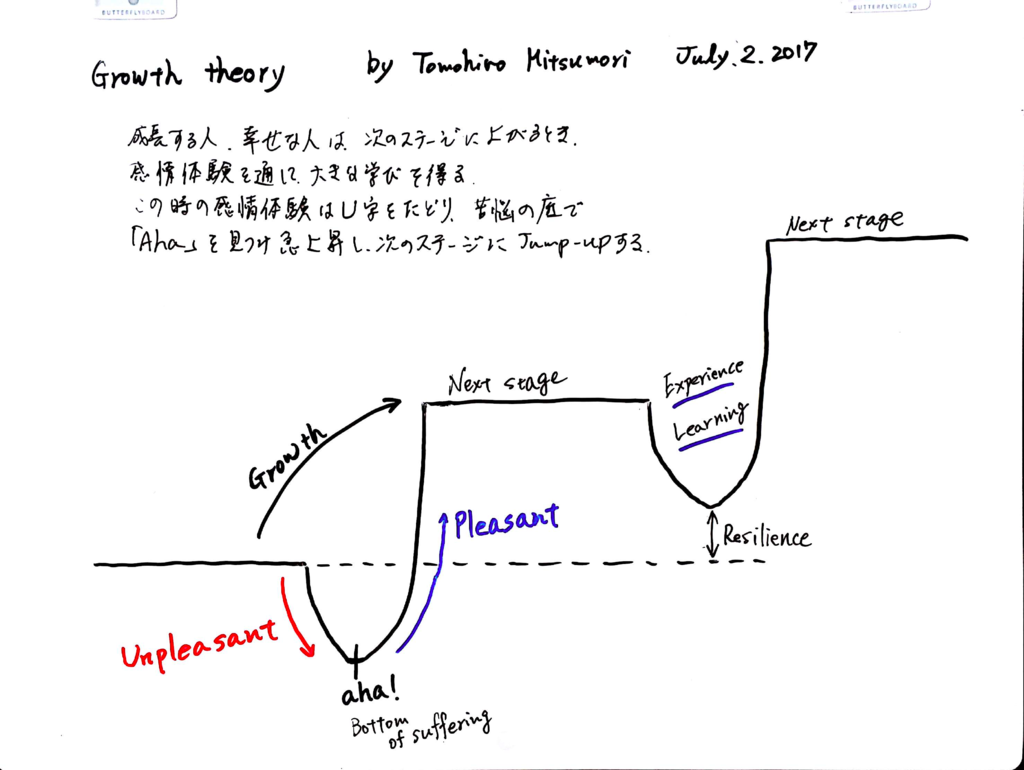 BUTTERFLYBOARD
BUTTERFLYBOARD
Growth theory by Tomohiro Mitsumori July.2.2017
成長する人、幸せな人は、次のステージに上がるとき、
感情体験を通じて、大きな学びを得る。
この時の感情体験はU字をたどり、苦悩の底で
「Aha」を見つけ急上昇し、次のステージにJump-upする。
Next stage
Next stage
Experience
Learning
Growth
Pleasant
Resilience
Unpleasant
aha!
Bottom
of suffering